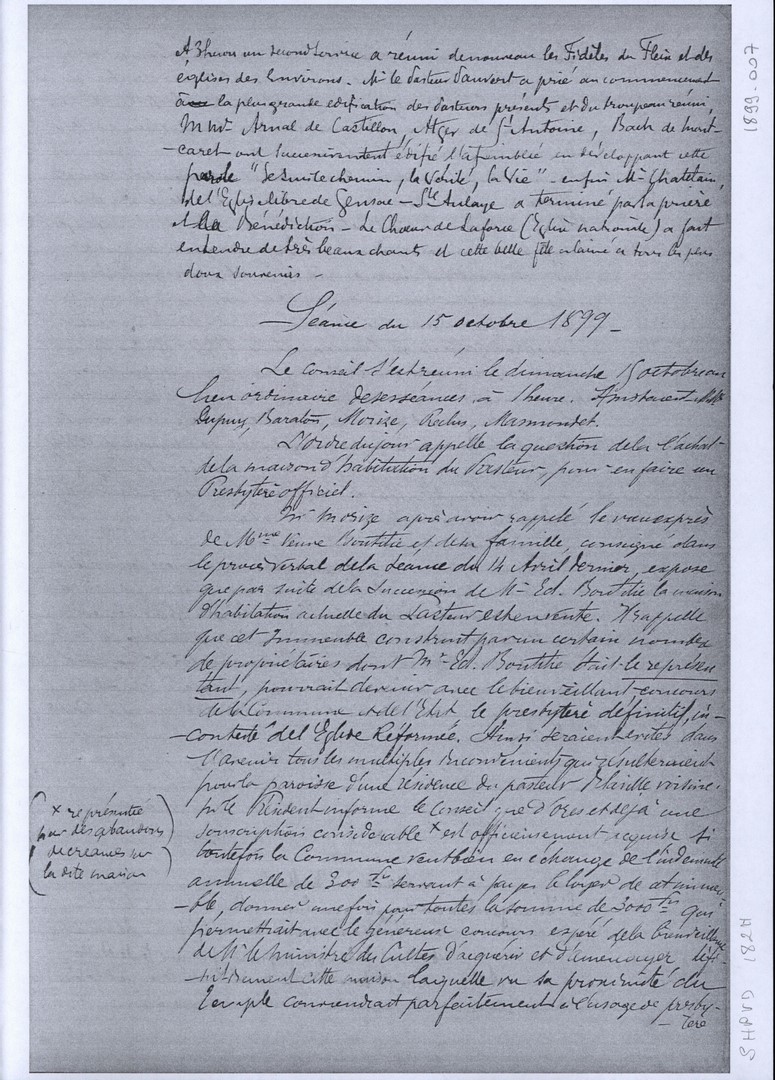 A 3 heures un second service a réuni de nouveau les Fidèles du Fleix et des
églises des Environs. Mr le Pasteur Sauvert a prié au commencement
la plus grande édification des Pasteurs présents et du troupeau réuni,
M Mrs Arnal de Castillon, Atger de St Antoine, Bach de Mont-
-caret ont successivement édifié l'assemblée en développant cette
parole "Je suis le chemin, la Vérité, la Vie" - enfin Mr Chatelain
de l'Eglise libre de Gensac - Ste Aulaye a terminé par la prière
et la Bénédiction - Le Chœur de Laforce (Eglise nationale) a fait
entendre de très beaux chants et cette belle fête a laissé à tous les plus
doux souvenirs -
Séance du 15 octobre 1899 -
Le conseil s'est réuni le dimanche 15 octobre au
lieu ordinaire de ses séances, à 1 heure. Assistaient MM
Dupuy, Baraton, Morize, Reclus, Masmondet.
L'ordre du jour appelle la question de la l'achat
de la maison d'habitation du Pasteur, pour en faire un
Presbytère officiel.
Mr Morize après avoir rappelé le vœu exprès
de Mme Veuve Boutitie et de sa famille, consigné dans
le procès verbal de la séance du 14 Avril dernier, expose
que par suite de la succession de Mr Ed. Boutitie la maison
d'habitation actuelle du Pasteur est en vente. Il rappelle
que cet Immeuble construit par un certain nombre
de propriétaires dont Mr Ed. Boutitie était le représen
tant, pourrait devenir avec le bienveillant concours
de la Commune et de l'Etat le presbytère définitif, in-
-contesté de l'Eglise Réformée. Ainsi seraient évités dans
l'avenir tous les multiples inconvénients qui résulteraient
pour la paroisse d'une résidence du pasteur
Mr le Président informe le Conseil que d'ores et déjà une
souscription considérable x est officieusement acquise si
toutefois la Commune veut bien en échange de l'indemnité
annuelle de 300 frs servant à payer le loyer de cet immeu-
-ble, donner une fois pour toutes la somme de 3000 frs qui
permettrait avec le généreux concours espéré de la bienveillance
de Mr le Ministre des Cultes d'acquérir et d'aménager défi-
-nitivement cette maison laquelle vu sa proximité du
Temple conviendrait parfaitement à l'usage de presby-
-tère
x représentée
par des abandons
de créances sur
la dite maison
1899-007
SHPVD 182H